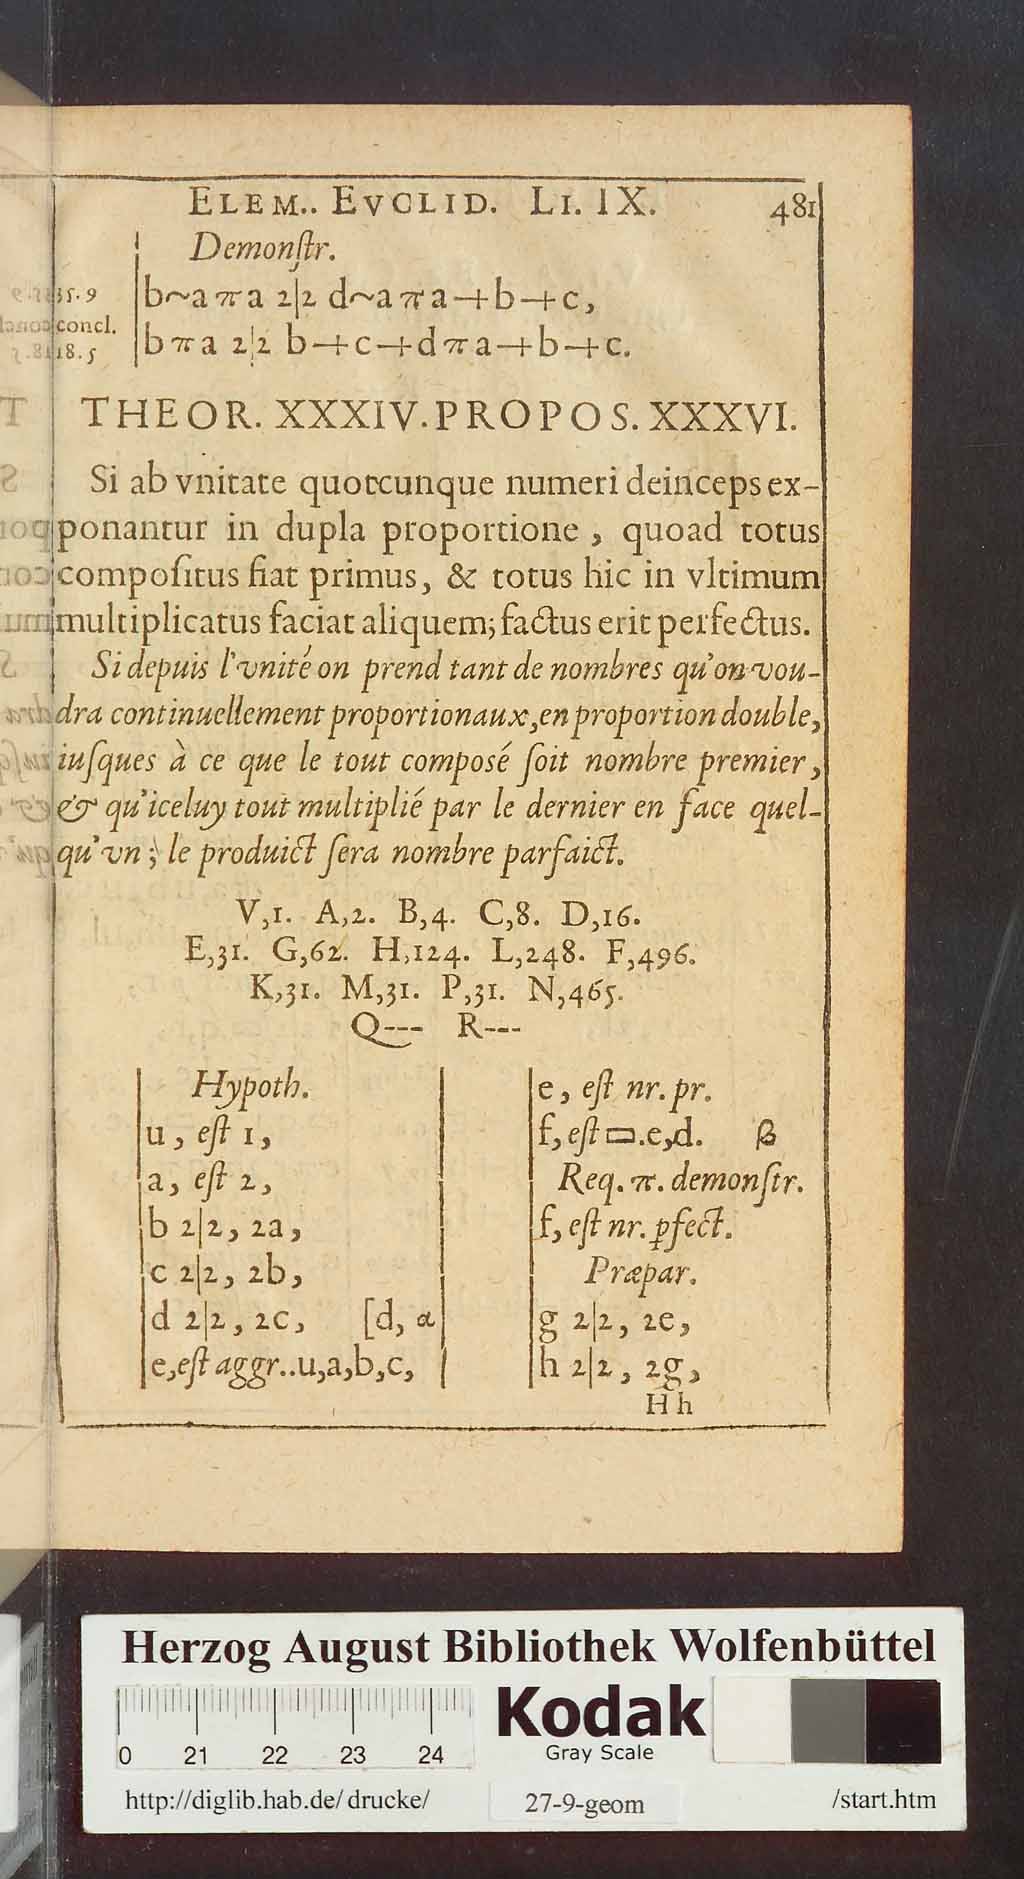 ELEM.. EVCLID. LI. IX. 481
Demonſtr.
35.9 b~a π a 2|2 d~a π a+b+c,
concl.
18.5 b π a 2|2 b+c+d π a+b+c.
THEOR. XXXIV. PROPOS. XXXVI.
Si ab vnitate quotcunque numeri deinceps ex-
ponantur in dupla proportione, quoad totus
compoſitus fiat primus, & totus hic in vltimum
multiplicatus faciat aliquem; factus erit perfectus.
Si depuis l'vnité on prend tant de nombres qu'on vou-
dra continuellement proportionaux, en proportion double,
iuſques à ce que le tout composé ſoit nombre premier,
& qu'iceluy tout multiplié par le dernier en face quel-
qu'vn; le produict ſera nombre parfaict.
V,1. A,2. B,4. C,8. D,16.
E,31. G,62. H,124. L,248. F,496.
K,31. M,31. P,31. N,465.
Q--- R---
Hypoth.
u, eſt 1,
a, eſt 2,
b 2|2, 2a,
c 2|2, 2b,
d 2|2, 2c, [d, α
e, eſt aggr..u,a,b,c,
e, eſt nr. pr.
f, eſt ▭.e,d. β
Req. π. demonſtr.
f, eſt nr. ꝑfect.
Præpar.
g 2|2, 2e,
h 2|2, 2g,
Hh
Herzog August Bibliothek Wolfenbüttel
Kodak
Gray Scale
0 21 22 23 24
http://diglib.hab.de/ drucke/ 27-9-geom /start.htm